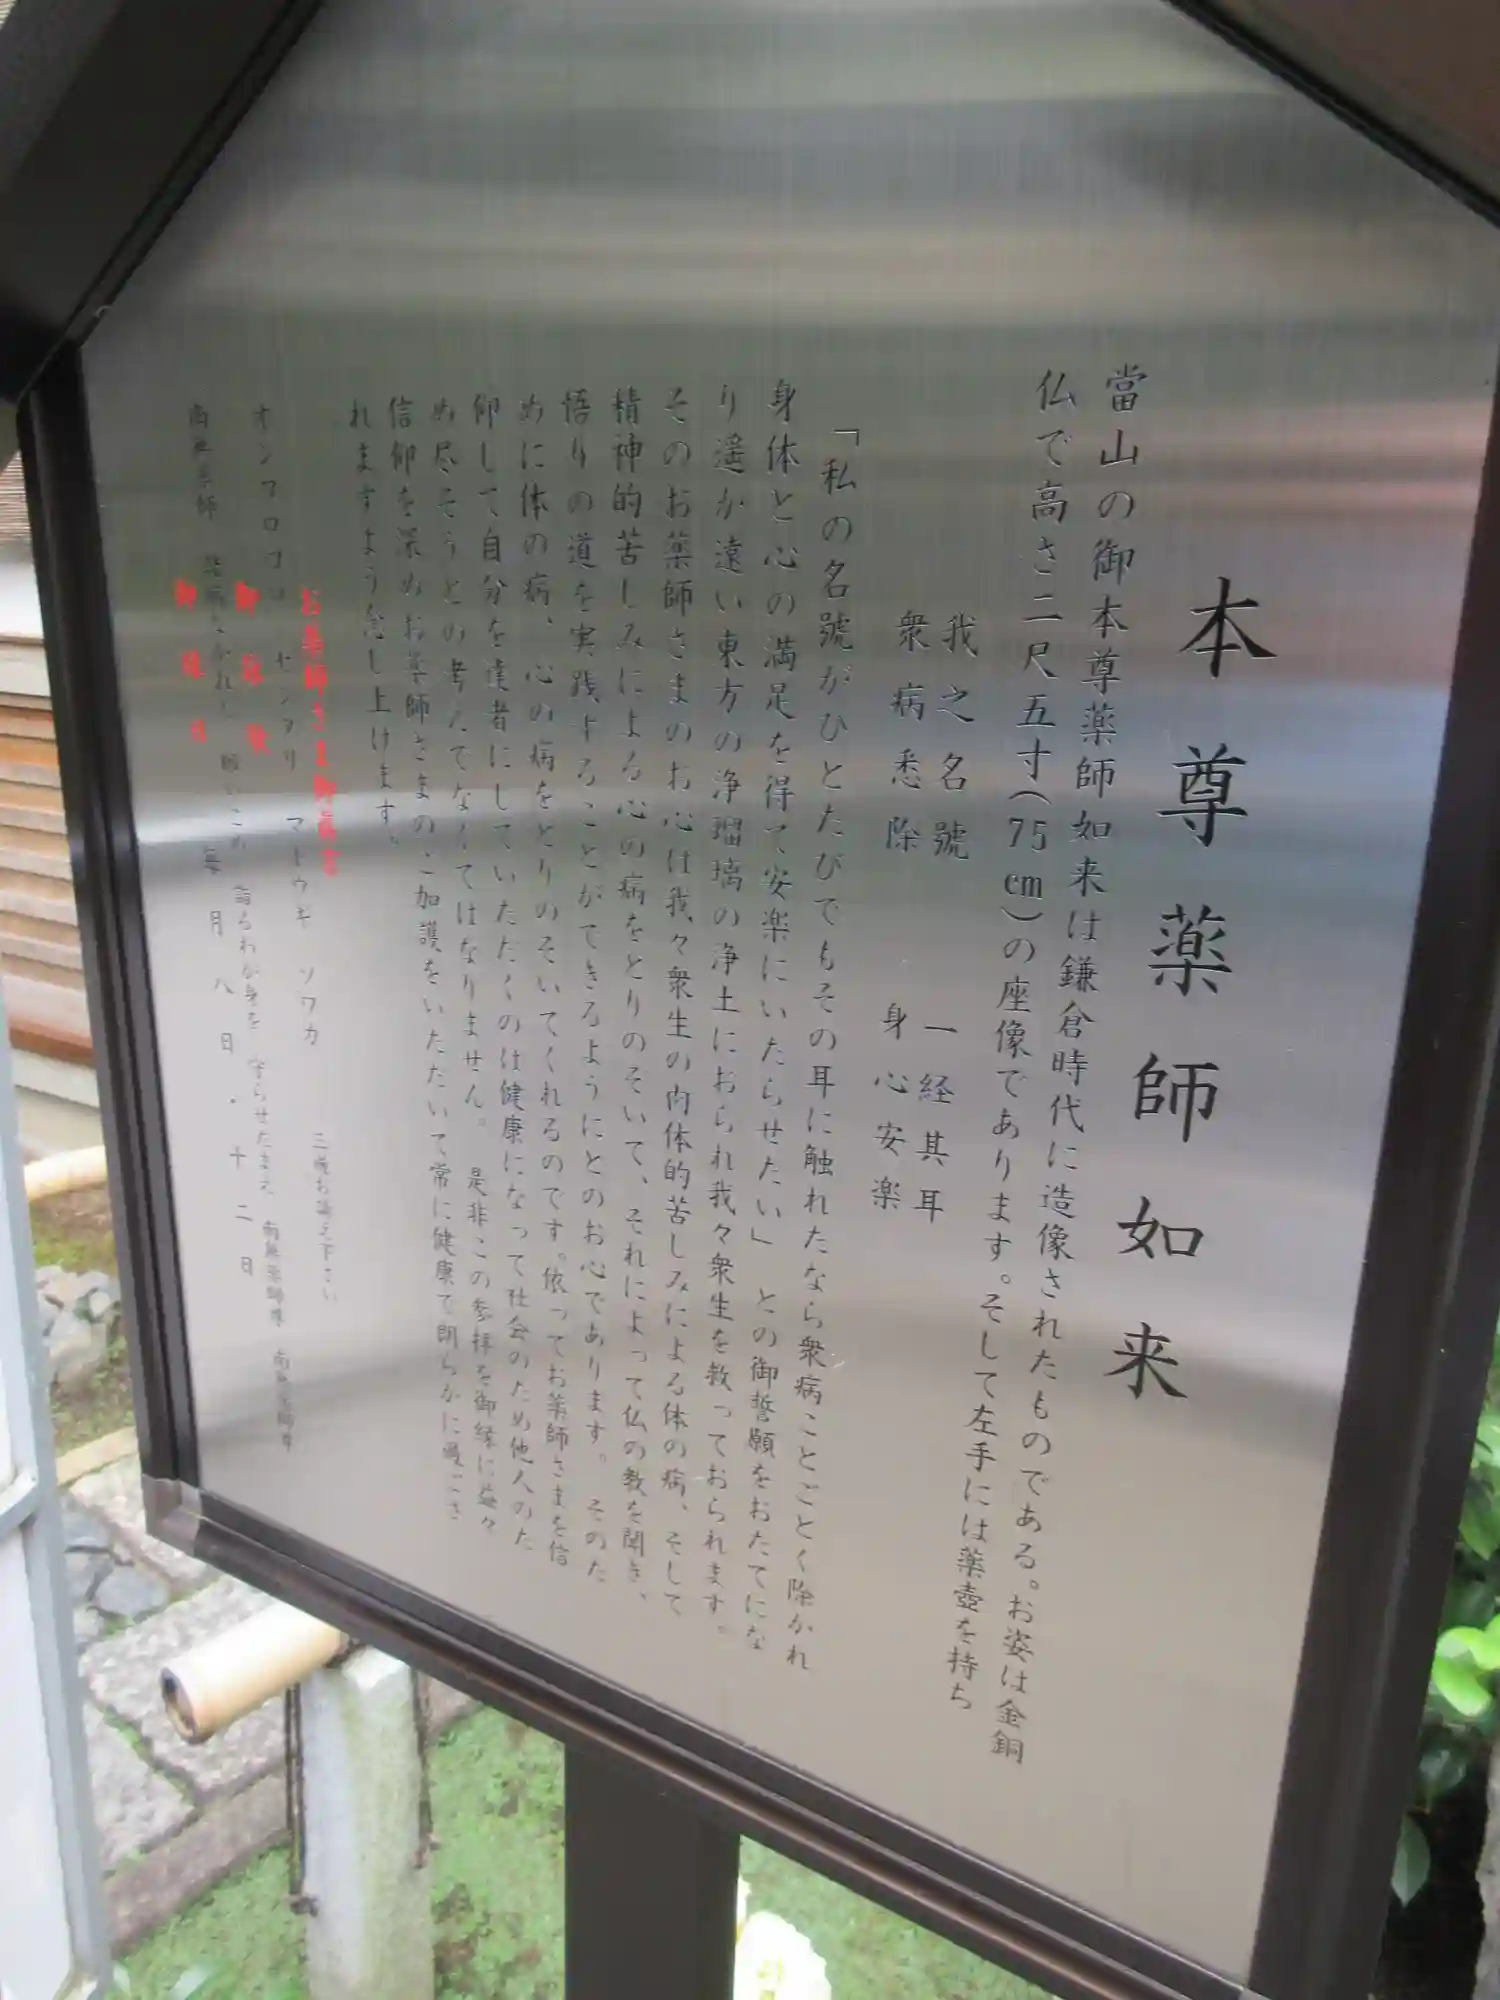 本尊薬師如来
當山の御本尊薬師如来は鎌倉時代に造像されたものである。お姿は金銅
仏で高さ二尺五寸(75cm)の座像であります。そして左手には薬壺を持ち
我之名號 一経其耳
衆病悉除 身心安楽
「私の名號がひとたびでもその耳に触れたなら衆病ことごとく除かれ
身体と心の満足を得て安楽にいたらせたい」 との御誓願をおたてにな
り遥か遠い東方の浄瑠璃の浄土におられ我々衆生を救っておられます。
そのお薬師さまのお心は我々衆生の肉体的苦しみによる体の病、そして
精神的苦しみによる心の病をとりのそいて、それによって仏の教を聞き、
悟りの道を実践することができるようにとのお心であります。 そのた
めに体の病、心の病をとりのそいてくれるのです。依ってお薬師さまを信
仰して自分を達者にしていたたくのは健康になって社会のため他人のた
め尽そうとの考えてなくてはなりません。 是非この参拝を御縁に益々
信仰を深めお薬師さまのご加護をいたたいて常に健康て朗らかに過ごさ
れますよう念し上けます。
お薬師さま御真言
オンコロコロ センダリ マトウギ ソワカ 三唱お唱え下さい
御詠歌
南無薬師 諸病なかれと 願いこめ 詣るわが身を 守らせたまえ 南無薬師尊 南無薬師尊
御縁日 毎月八日・十二日